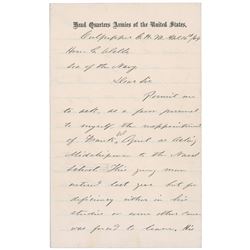 Head Quarters Armies of the United States,
Culpepper C. H. Va. 
Hon. G. Welles
Sec. of the Navy
Dear Sir
Permit me
to ask, as a favor personal
to myself the reappointment
of Frank as Acting
Midshipman to the Naval
School. This young man
entered last year but for
deficiency either in his
studies or some other cause
was forced to leave. His